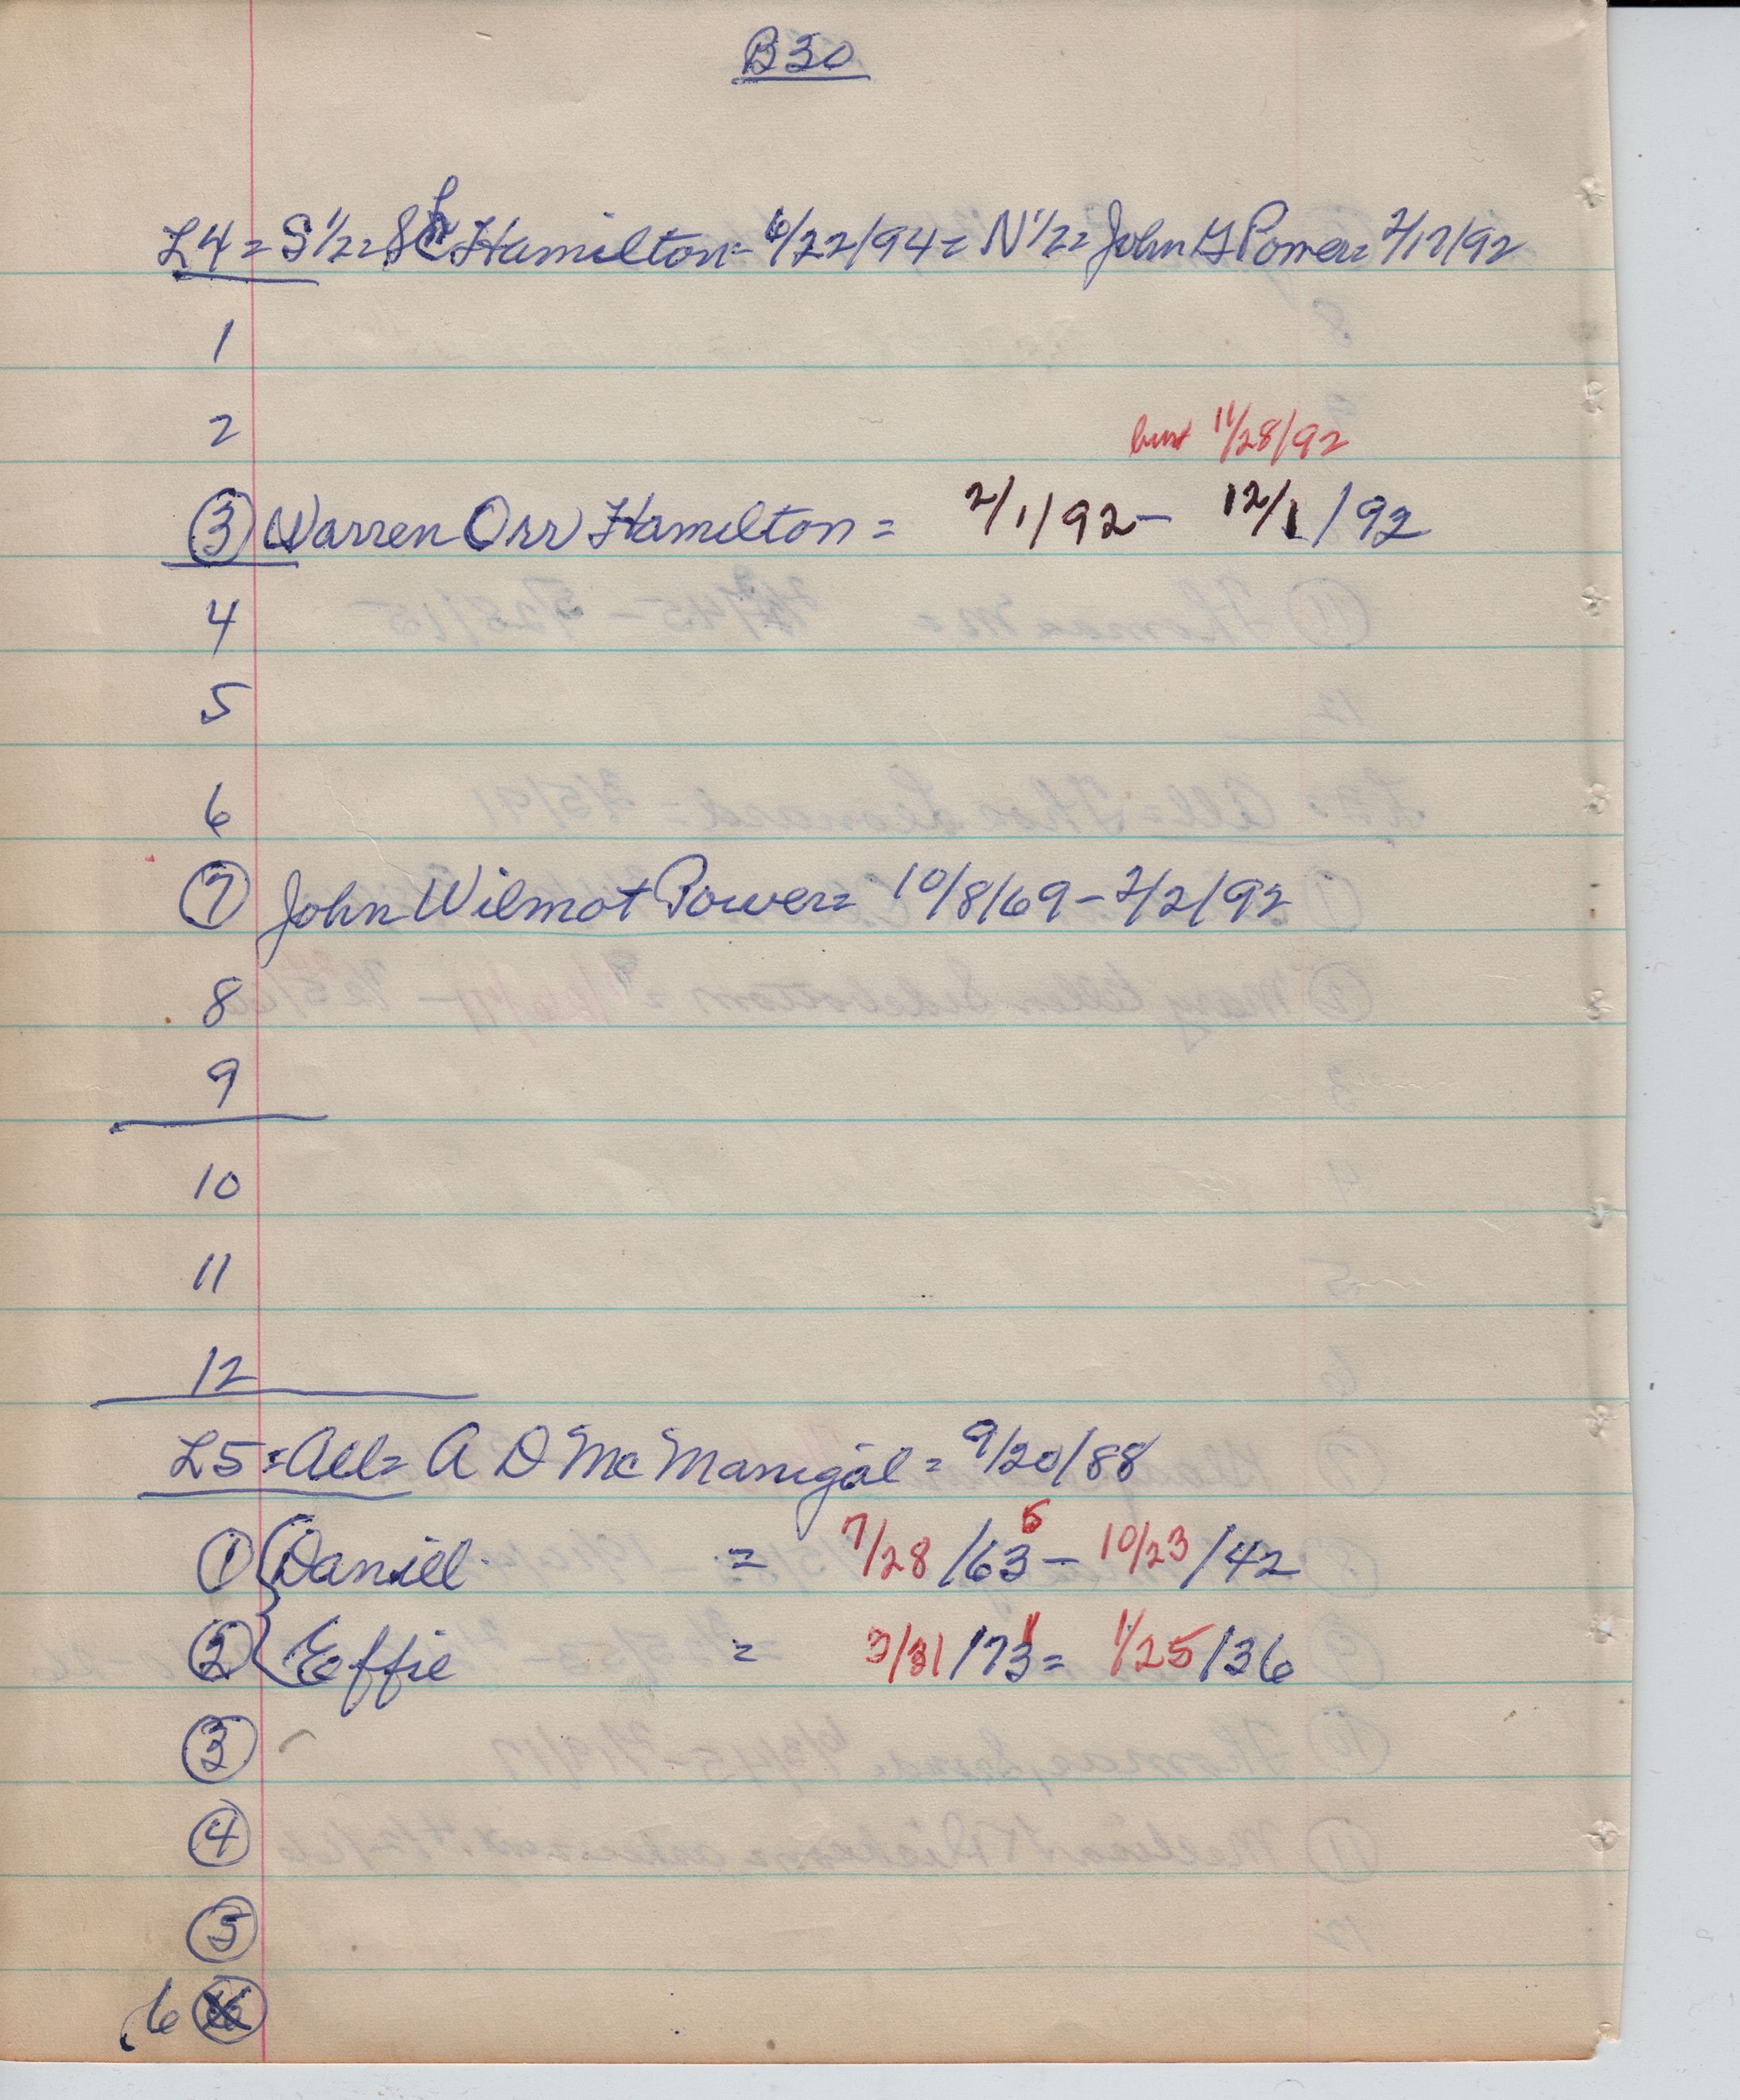 B30
L4 = S 1/2 = S L Hamilton = 6/22/94 = N 1/2 = John G Power = 2/17/92
1
2
11/28/92
3 Warren Orr Hamilton = 2/1/92 - 12/1/92
4
5
6
7 John Wilmot Power = 10/8/69 - 2/2/92
8
9
10
11
12
L5 = All = A D McManigal = 9/20/88
1 Daniel = 7/28/63 5 - 10/23/42
2 Effie = 3/31/73 1 = 1/25/36
3
4
5
6